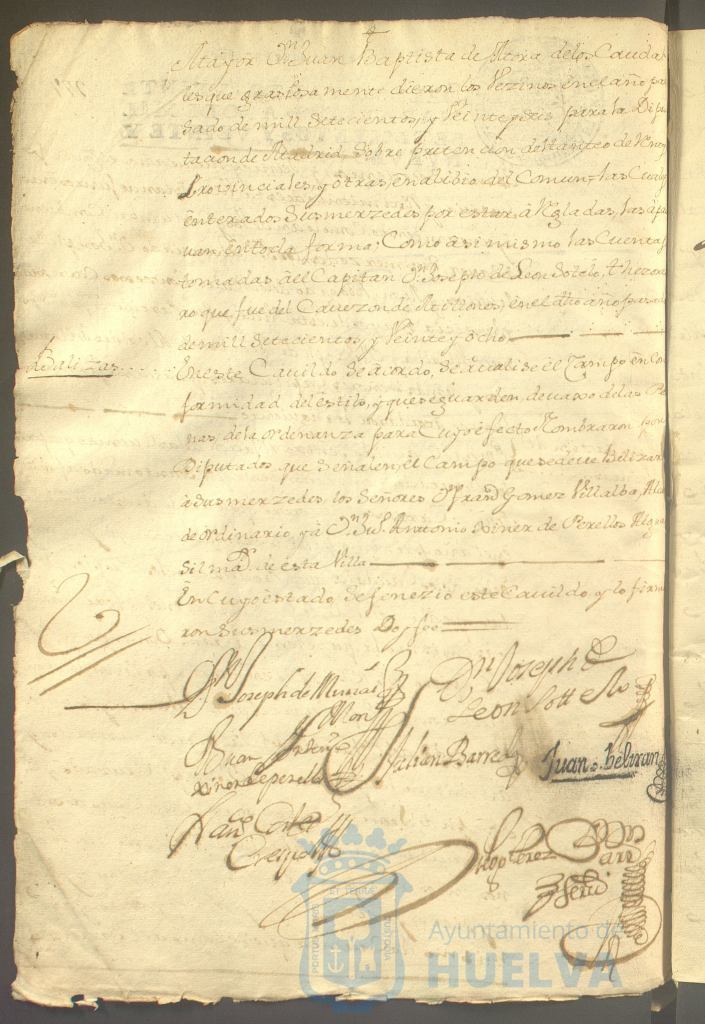 Mayor Dn Juan Baptista de Mora de los Cauda
les que graciosamente dieron los Vezinos en el año pa
sado de mill setecientos, y Veinte y seis para la Dipu
tacion de Madrid sobre pretencion de tanteo de Rentas
Provinciales, y otras, en alibio del Comun; las Cuales
enterados Susmerzedes por estar, a Regladas, las apru
uan, en toda forma: Como asimismo las Cuentas
tomadas al Capitan Dn Joseph de Leon Sotelo, thezore
ro que fue del Cauezon de Millones, en el dho año pasado
de mill setecientos, y Veinte y ocho
Balizas
En este Cavildo Se acordo, se valise el Campo en Con
formidad del estilo, y que se guarden, devaxo de las Pe
nas, de la ordenanza para Cuyo efecto Nombraron por
Diputados que Señalen, el Campo que se deue Balizar
a Susmerzedes, los Señores Dn Franco Gomez Villalba, Alcal
de ordinario, y a Dn Ju. Antonio Xiner de Perellos Algua
sil mar. de esta Villa
En Cuyo estado, se fenezio este Cavildo, y lo firma
ron Susmerzedes Doy fee
Dn Joseph de
Dn Joseph de
Leon Sottelo
Juan Anto
Xiner de perellos
Julian Barre
Juan beltran
Franco Cortes
Diego Perez
AYUNTAMIENTO
Ayuntamiento de
HUELVA
PORTUS MARIS
ET TERRAE
CUSTODIA